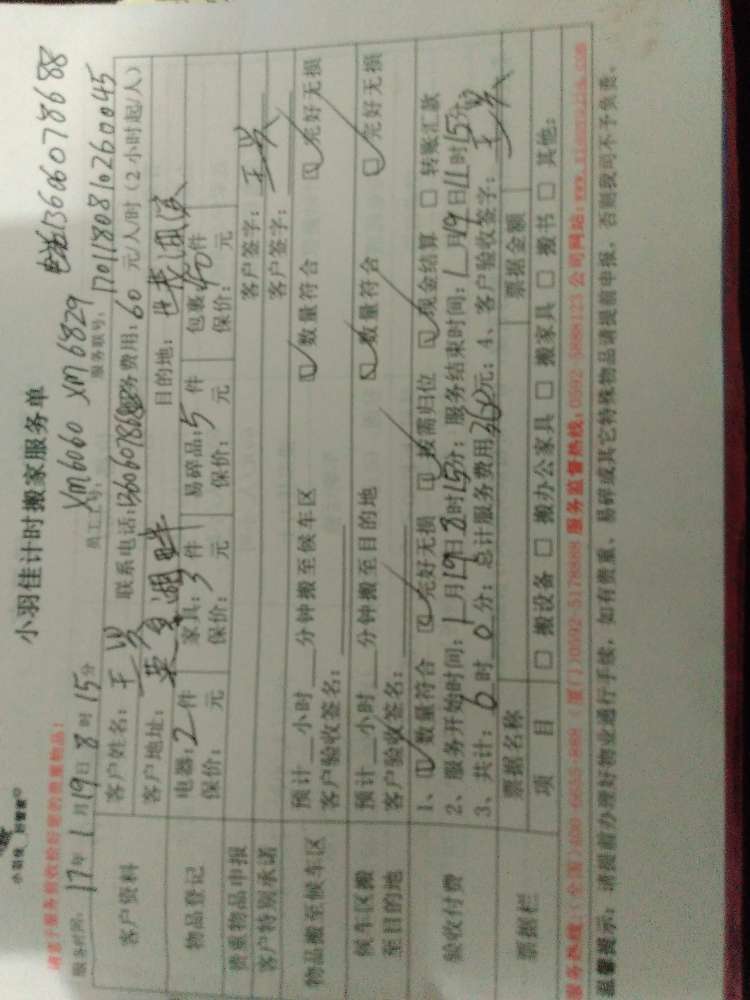 小羽佳计时搬家服务单
小羽佳
请您于服务前收检好您的贵重物品:
电话13606078688
XM6060 XM6829
服务时间: 17年1月19日8时15分 员工工号: 服务联号: 170118081026 0045
客户资料 客户姓名: 王 联系电话:13606078688 服务费用:60元/人/时(2小时起/人)
客户地址: 湖畔 目的地:
物品登记 电器:2件 家具:3件 易碎品:5件 包裹:40件
保价: 元 保价: 元 保价: 元 保价: 元
贵重物品申报 客户签字: 王
客户特别承诺 客户签字:
物品搬至候车区 预计__小时__分钟搬至候车区 ☑数量符合 ☑完好无损
客户验收签名:
候车区搬至目的地 预计__小时__分钟搬至目的地 ☑数量符合 ☑完好无损
客户验收签名:
验收付费 1、☑数量符合 ☑完好无损 ☑按需归位 ☑现金结算 □转账汇款
2、服务开始时间:1月19日8时15分; 服务结束时间:1月19日11时15分
3、共计:6时0分; 总计服务费用360元; 4、客户验收签字: 王
票据栏 票据名称 票据金额
项目 □搬设备 □搬办公家具 □搬家具 □搬书 □其他:
服务热线:(全国)400-6655-888 (厦门)0592-5178888 服务监督热线:0592-5888123 公司网站:www.xiaoyujia.com
温馨提示: 请提前办理好物业通行手续, 如有贵重、易碎或其它特殊物品请提前申报, 否则我司不予负责。